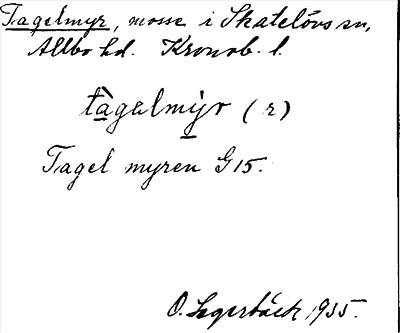 Tagelmyr, mosse i Skatelövs sn,
Allbo hd. Kronob. l.
tàgelmy̱r (r)
Tagel myren G 15.
O. Lagerbäck 1935.